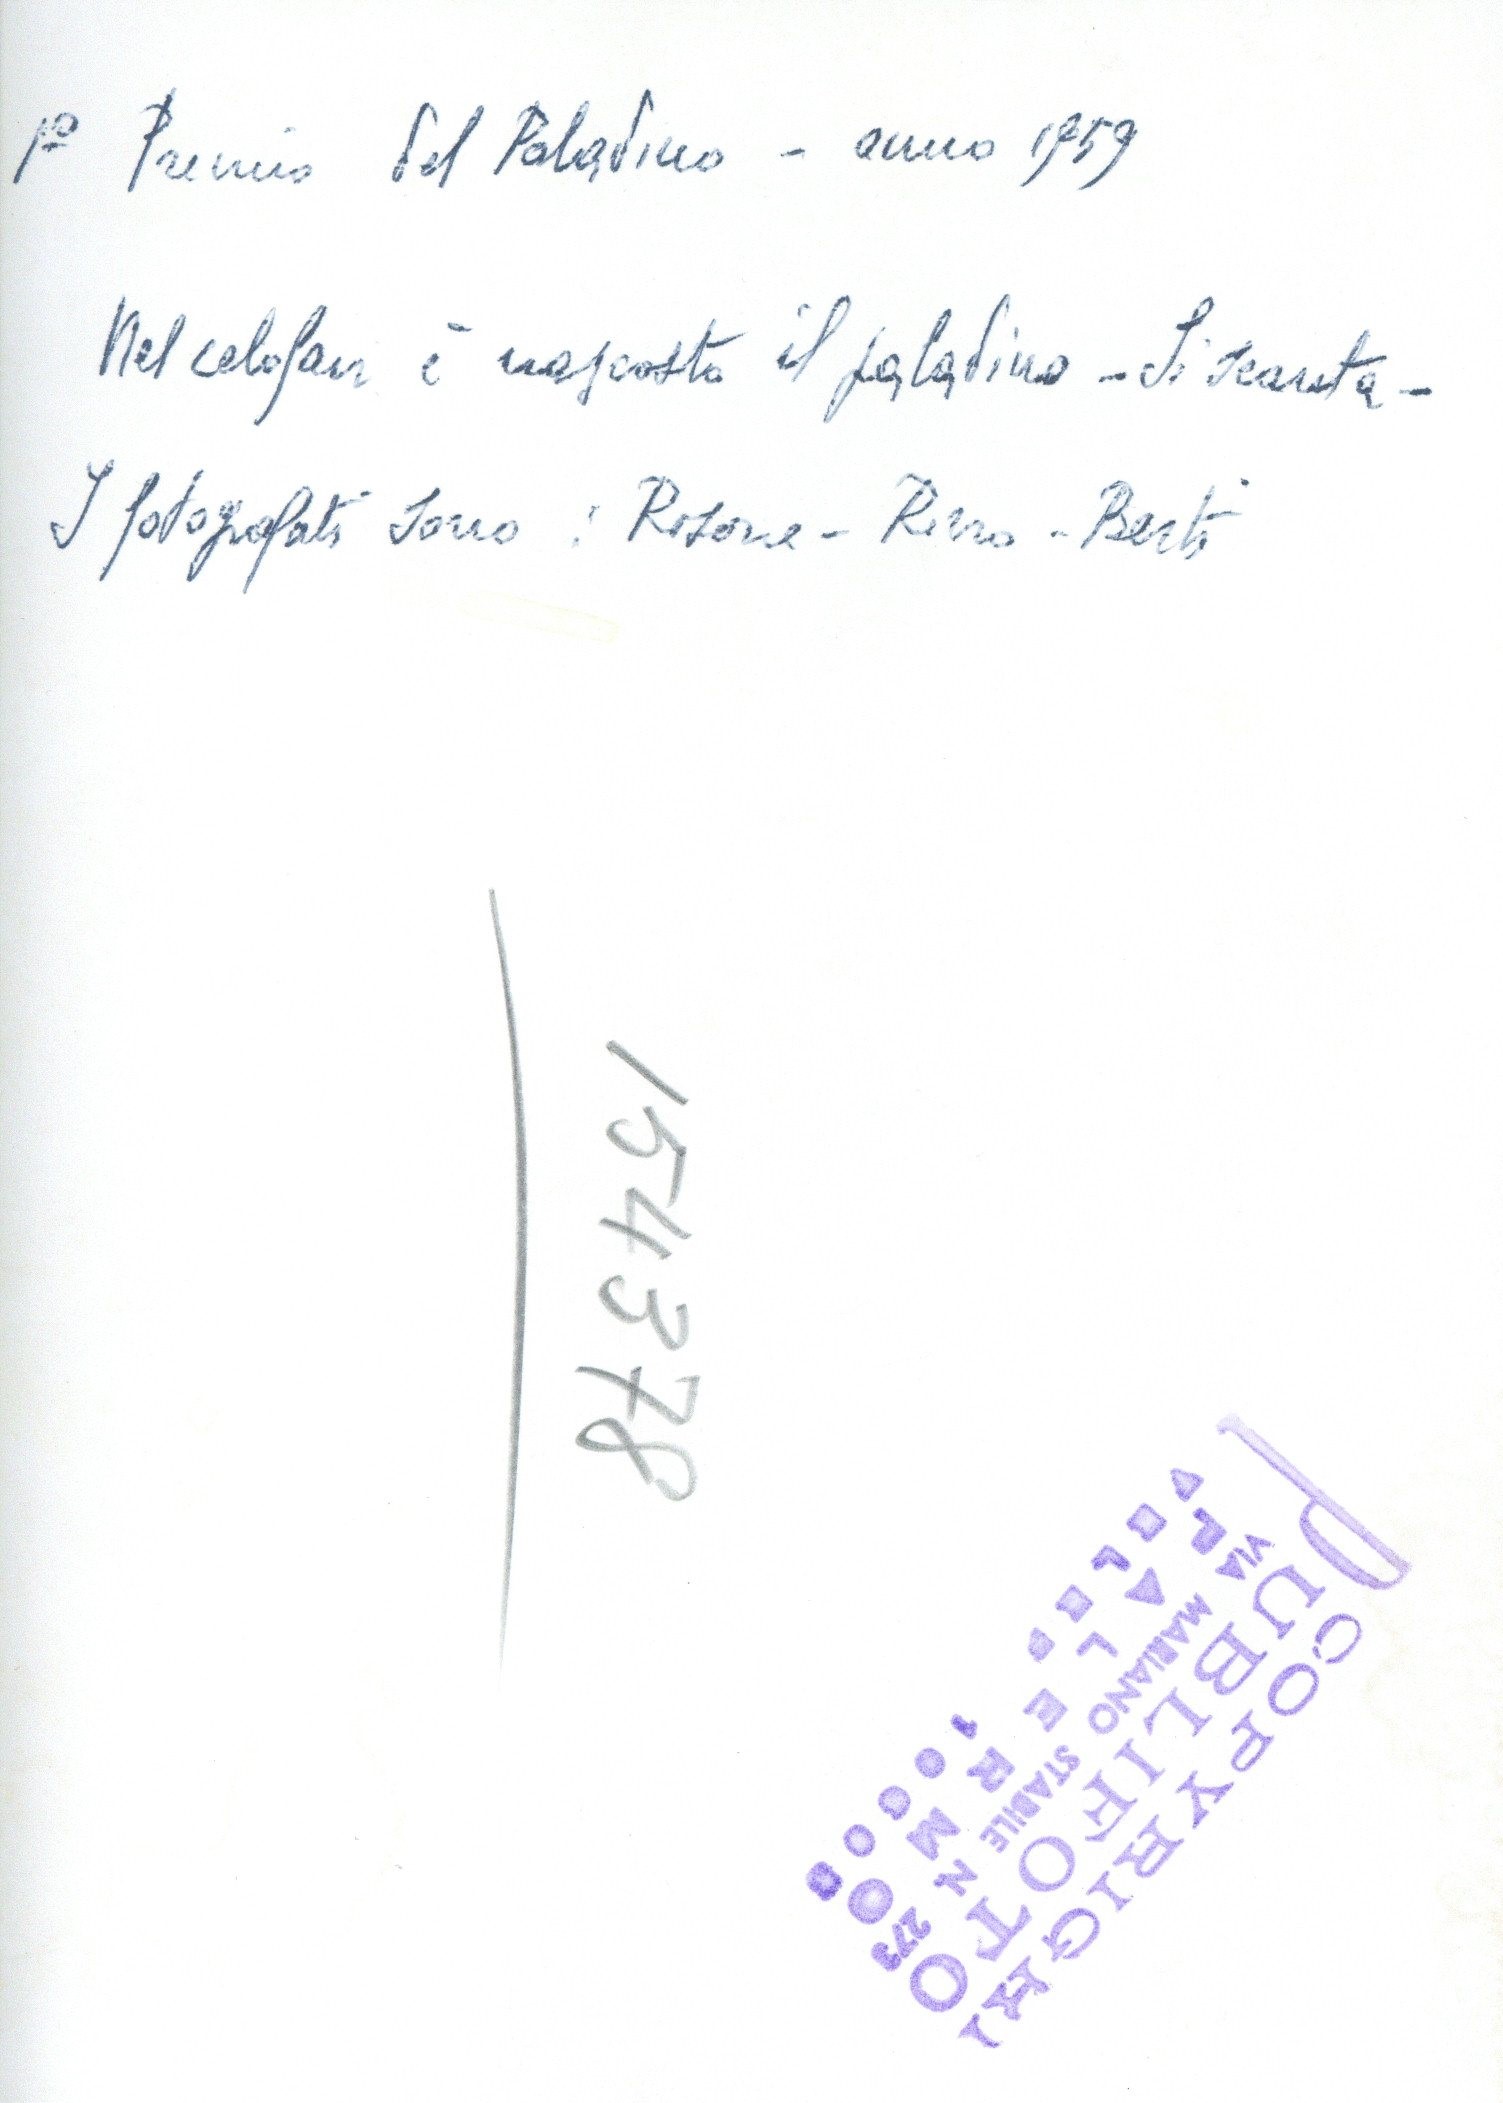 1º Premio del Paladino - anno 1959
Nel celofan è nascosto il paladino - Si scarta -
I fotografati sono : Rosone - Renna - Berti
154378
COPYRIGHT
PUBLIFOTO
VIA MARIANO STABILE 273
PALERMO